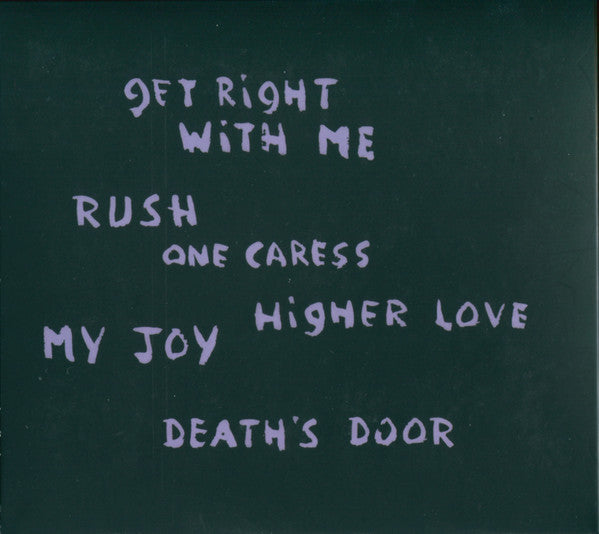 gET RigHT
WiTH ME
RUSH
ONE CARESS
HigHER LOVE
MY JOY
DEATH'S DOOR